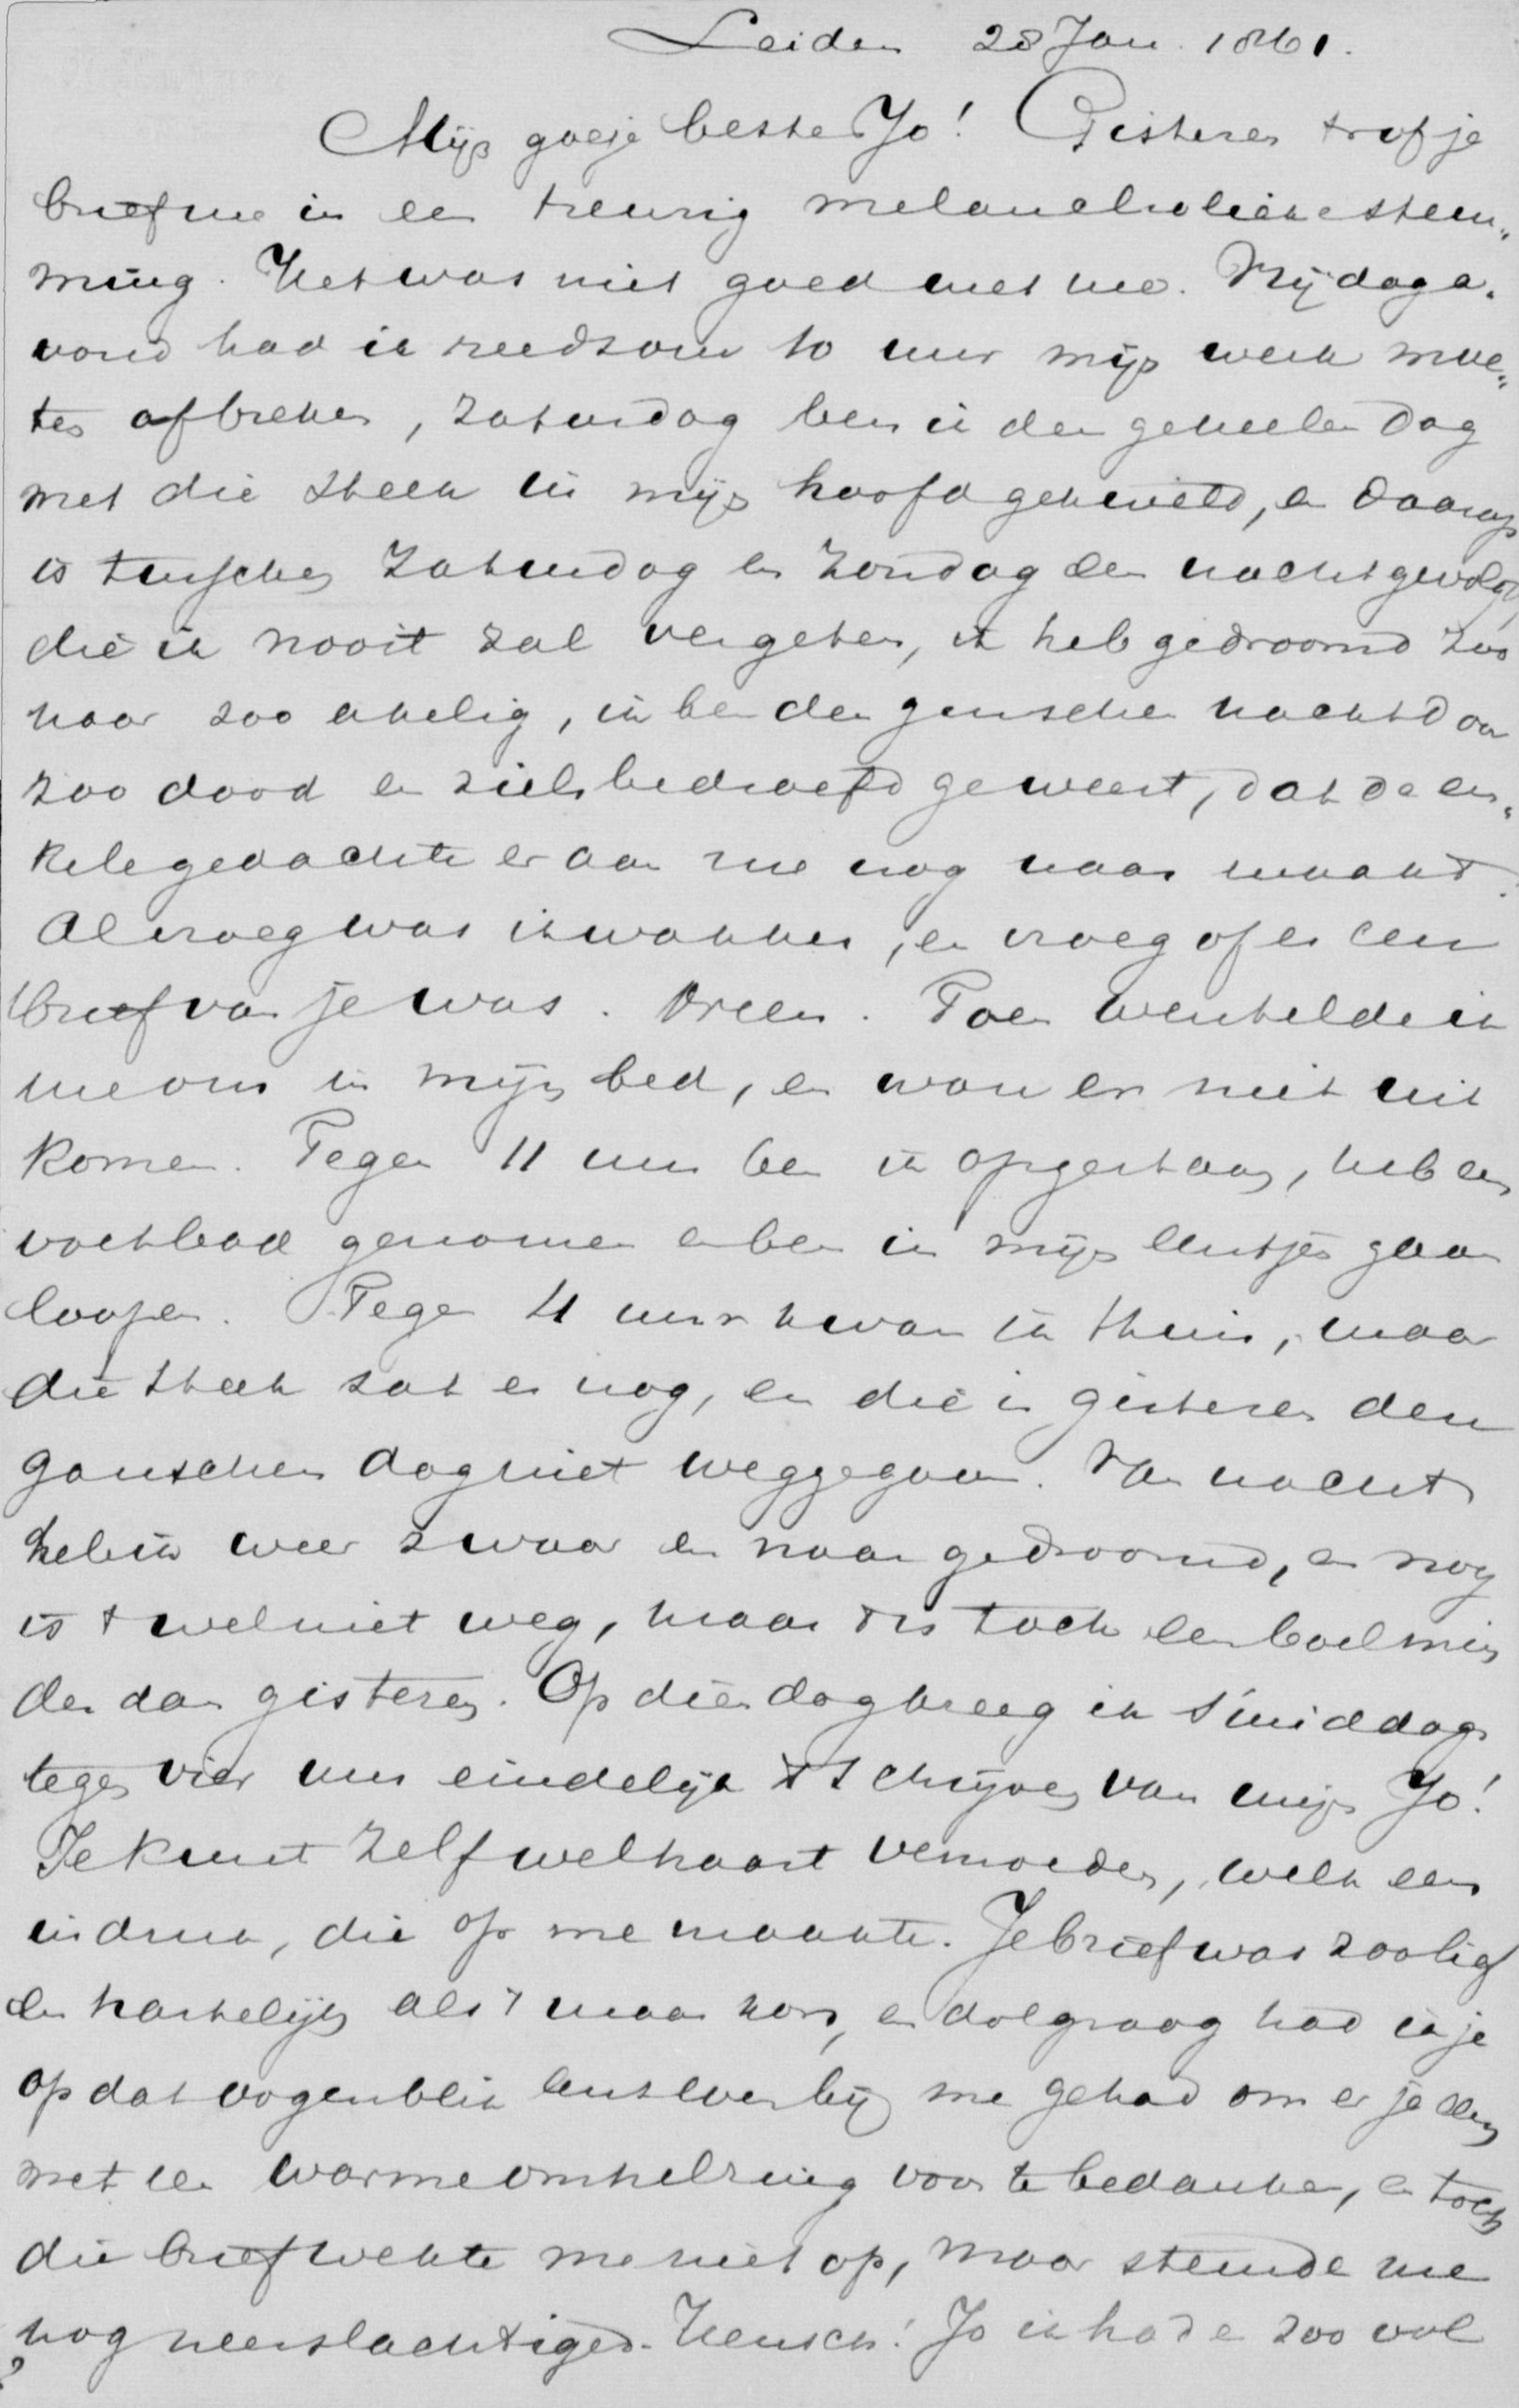 Leiden 28 Jan. 1861.
Mijn goeje beste Jo! Gisteren trof je
brief me in een treurig melancholieke stem„
ming. Het was niet goed met me. Vrijdaga„
vond had ik reeds om 10 uur mijn werk moe„
ten afbreken, Zaturdag ben ik den geheelen dag
met die steek in mijn hoofd gekweld, en daarop
is tusschen Zaturdag en Zondag een nacht gevolgd
die ik nooit zal vergeten, ik heb gedroomd zoo
naar zoo akelig, ik ben den ganschen nacht door
zoo dood en zielsbedroefd geweest, dat de en„
kele gedachte er aan me nog naar maakt.
Al vroeg was ik wakker, en vroeg of er een
brief van je was. Neen. Toen wentelde ik
me om in mijn bed, en wou er niet uit
komen. Tegen 11 uur ben ik opgestaan, heb een
voetbad genomen en ben in mijn eentje gaan
loopen. Tegen 4 uur kwam ik thuis, maar
die steek zat er nog, en die is gisteren den
ganschen dag niet weggegaan. Van nacht
heb ik weer zwaar en naar gedroomd, en nog
is 't wel niet weg, maar 't is toch een boel min
der dan gisteren. Op dien dag kreeg ik 's middags
tegen vier uur eindelijk 't schrijven van mijn Jo!
Je kunt zelf wel haast vermoeden, welk een
indruk, die op me maakte. Je brief was zoo lief
en hartelijk als 't maar kon, en dolgraag had ik je
op dat oogenblik eens even bij me gehad om er je eens
met een warme omhelzing voor te bedanken, en toch
die brief wekte me niet op, maar stemde me
nog neerslachtiger. Heusch! Jo ik had e zoo vol